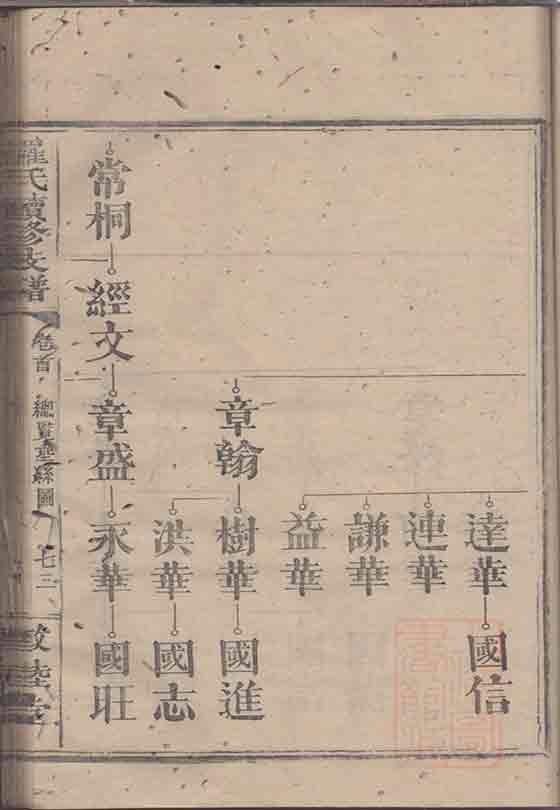 達華
國信
連華
謙華
益華
章翰
樹華
國進
洪華
國志
常桐
經文
章盛
永華
國旺
羅氏續修支譜
卷首
總 垂絲圖
七三
敦睦堂